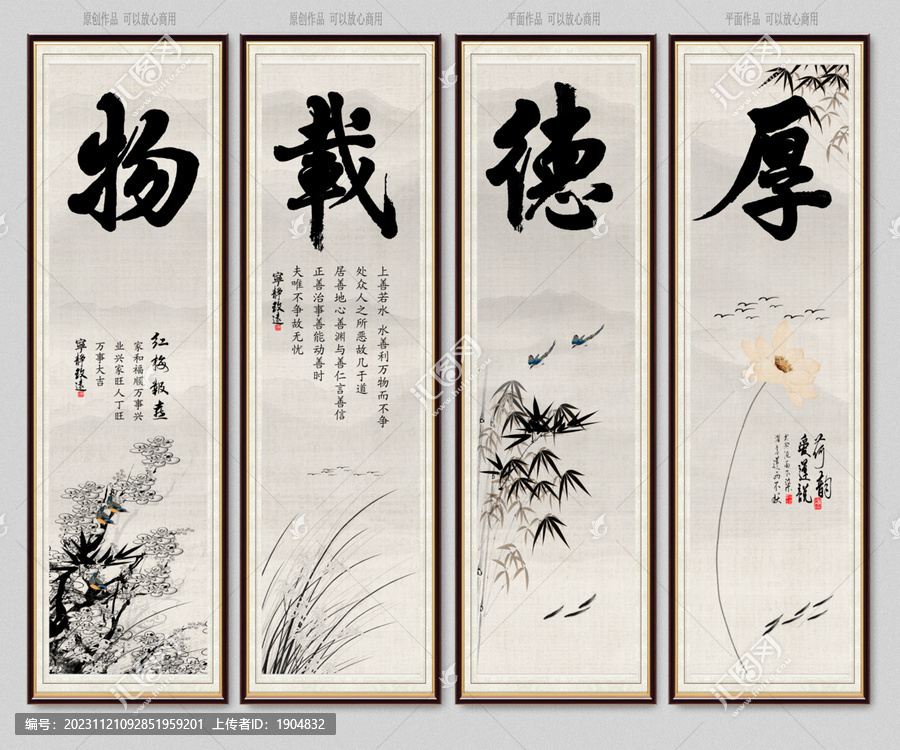 原创作品 可以放心商用
原创作品 可以放心商用
平面作品 可以放心商用
平面作品 可以放心商用
厚
德
載
物
荷韵
愛蓮説
上善若水 水善利万物而不争
处众人之所恶故几于道
居善地心善渊与善仁言善信
正善治事善能动善时
夫唯不争故无忧
寧静致遠
红梅報喜
家和福顺万事兴
业兴家旺人丁旺
万事大吉
寧静致遠
编号：20231121092851959201 上传者ID：1904832